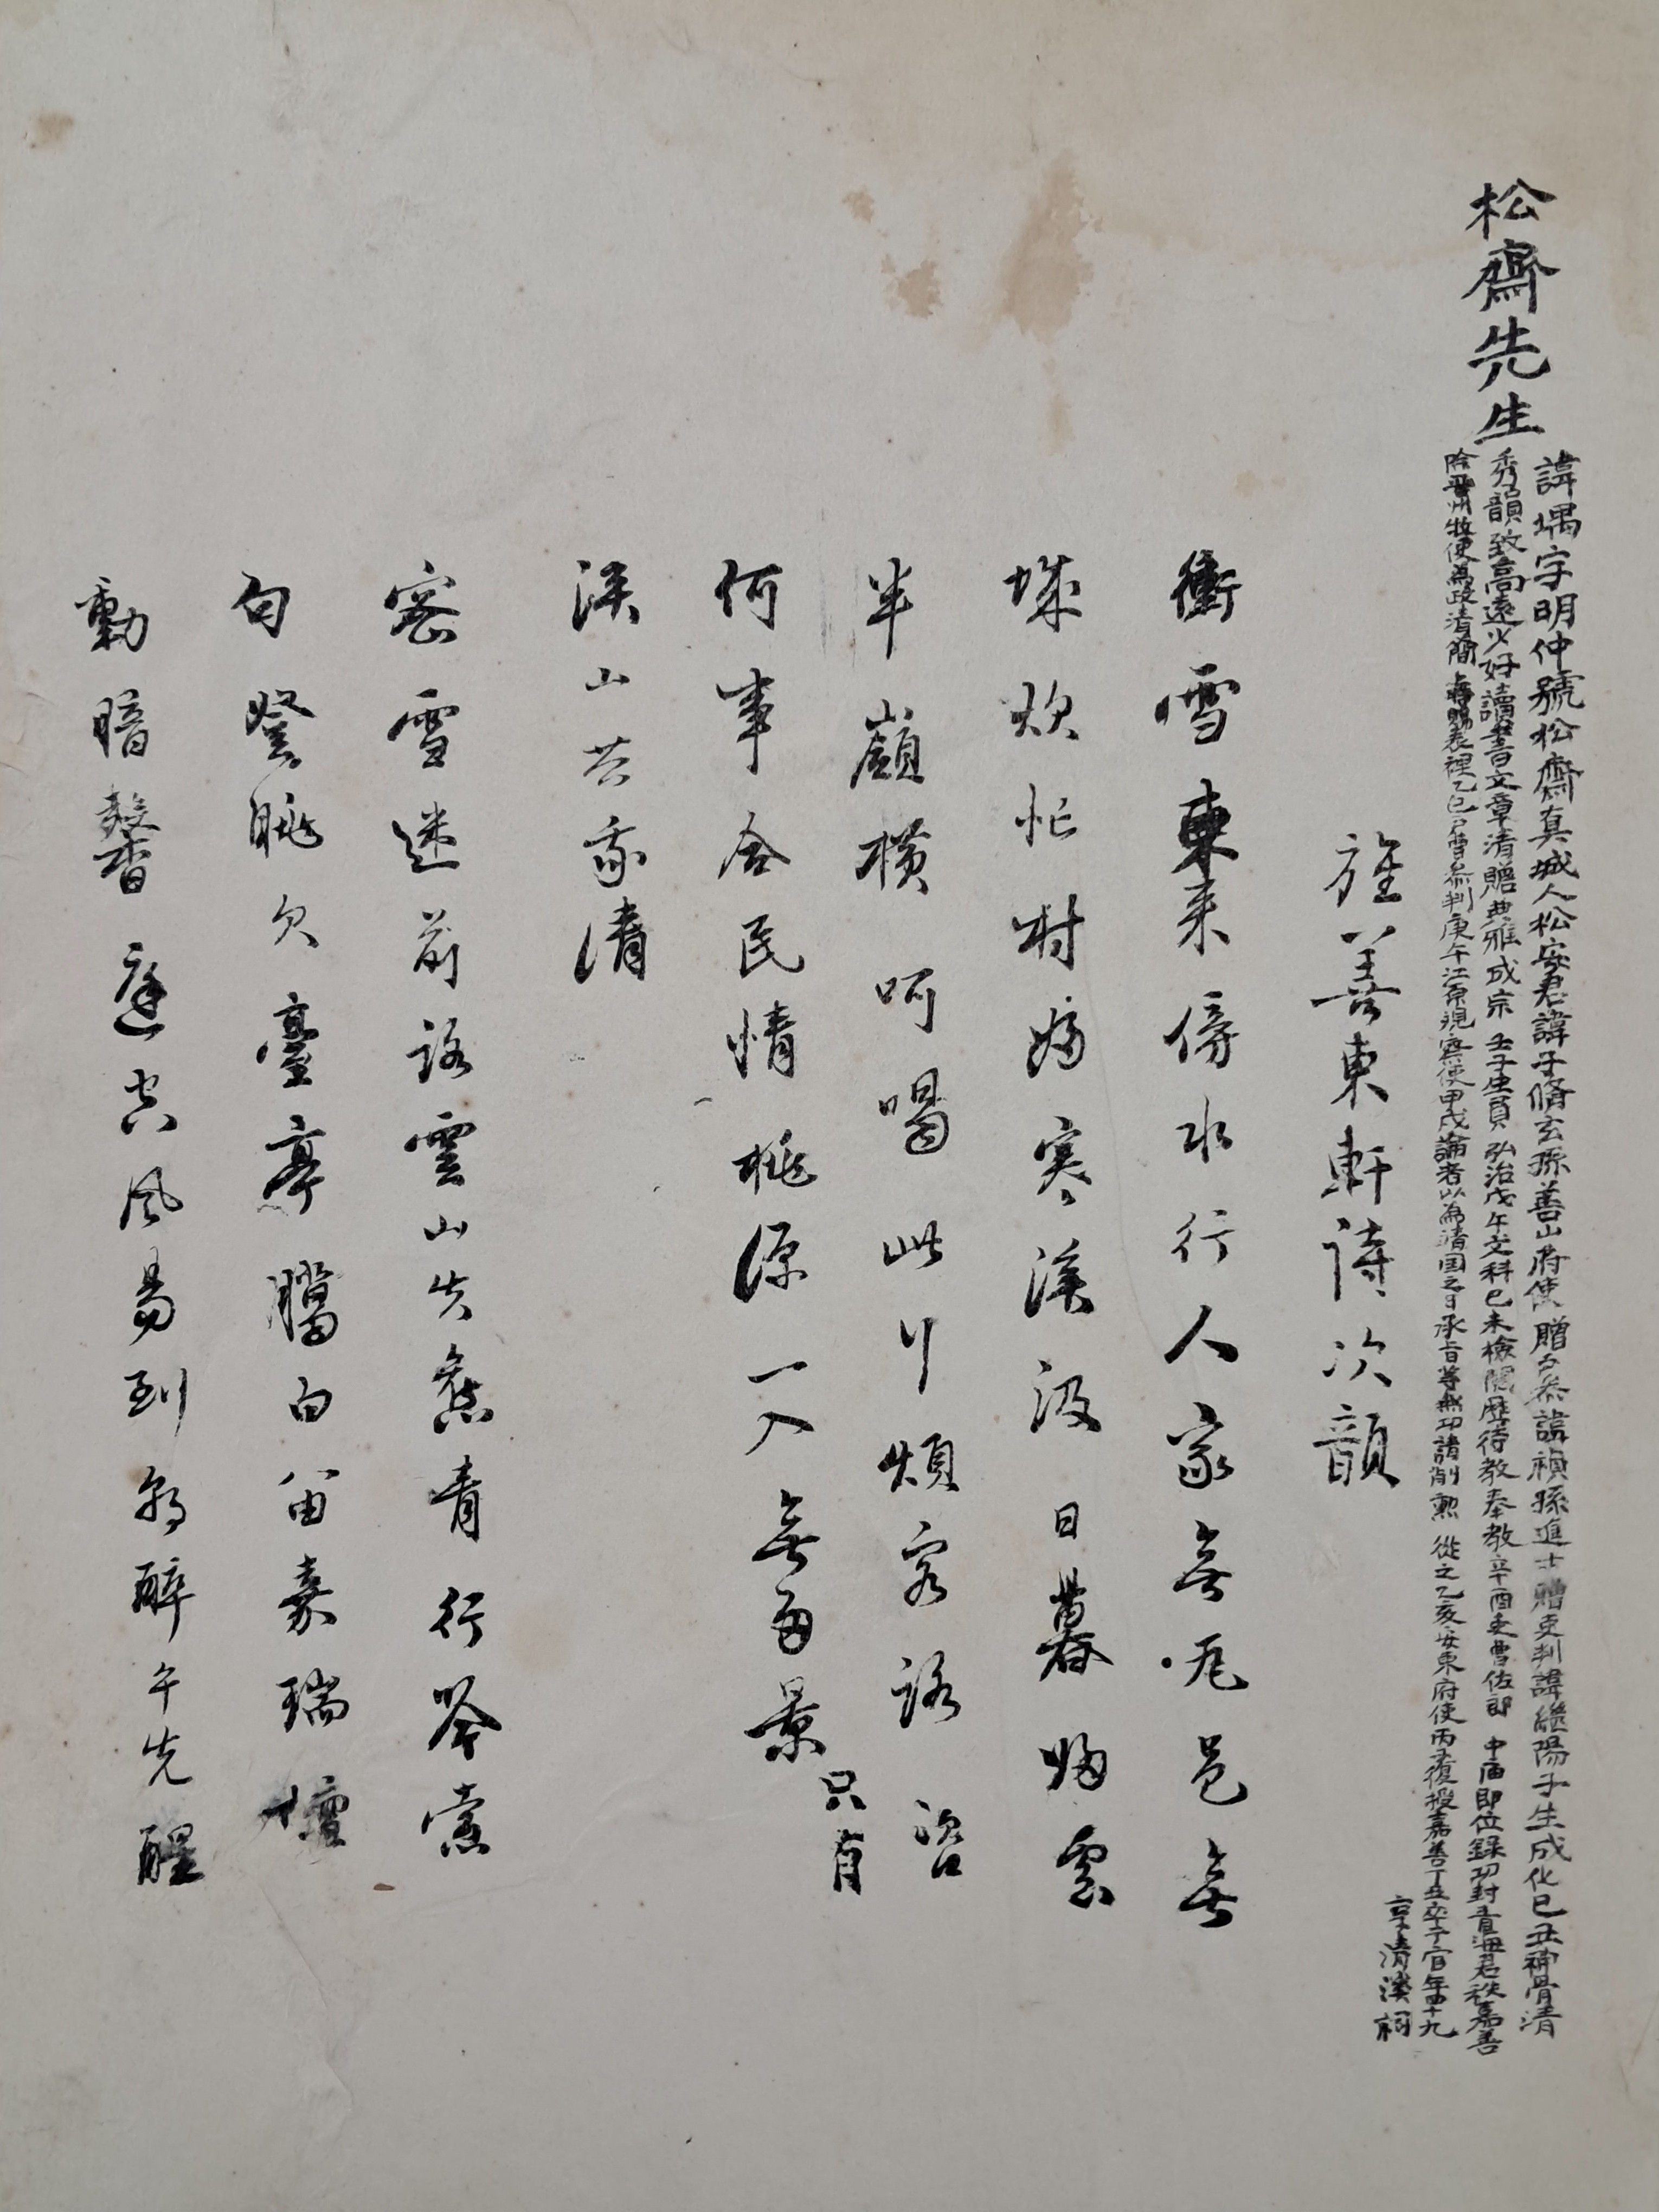 松齋先生
諱堣字明仲號松齋真城人松安君諱子脩玄孫善山府使贈戶叅諱禎孫進士贈吏判諱繼陽子生成化己丑神骨清
秀韻致高遠少好讀書文章清贍典雅成宗壬子生員弘治戊午文科己未檢閱歷待教奉教辛酉吏曹佐郎中庙即位錄功封青海君秩嘉善
除晉州牧使為政清簡 賜表裡己巳戶曹叅判庚午江原觀察使甲戌論者以為靖国之日承旨等無功請削勲從之乙亥安東府使丙子復授嘉善丁丑卒于官年四十九
享清溪祠
旌善東軒詩次韻
衝雪東来傍水行人家無瓦邑無
城炊忙村婦寒溪汲日暮歸雲
半嶺橫呵喝此行煩客路咨
何事合民情桃源一入無多景只有
溪山共我清
密雪迷前路雲山失舊青行吟索
句登眺欠臺亭臘白留嘉瑞檀
動暗馨庭空風易到卯醉午先醒